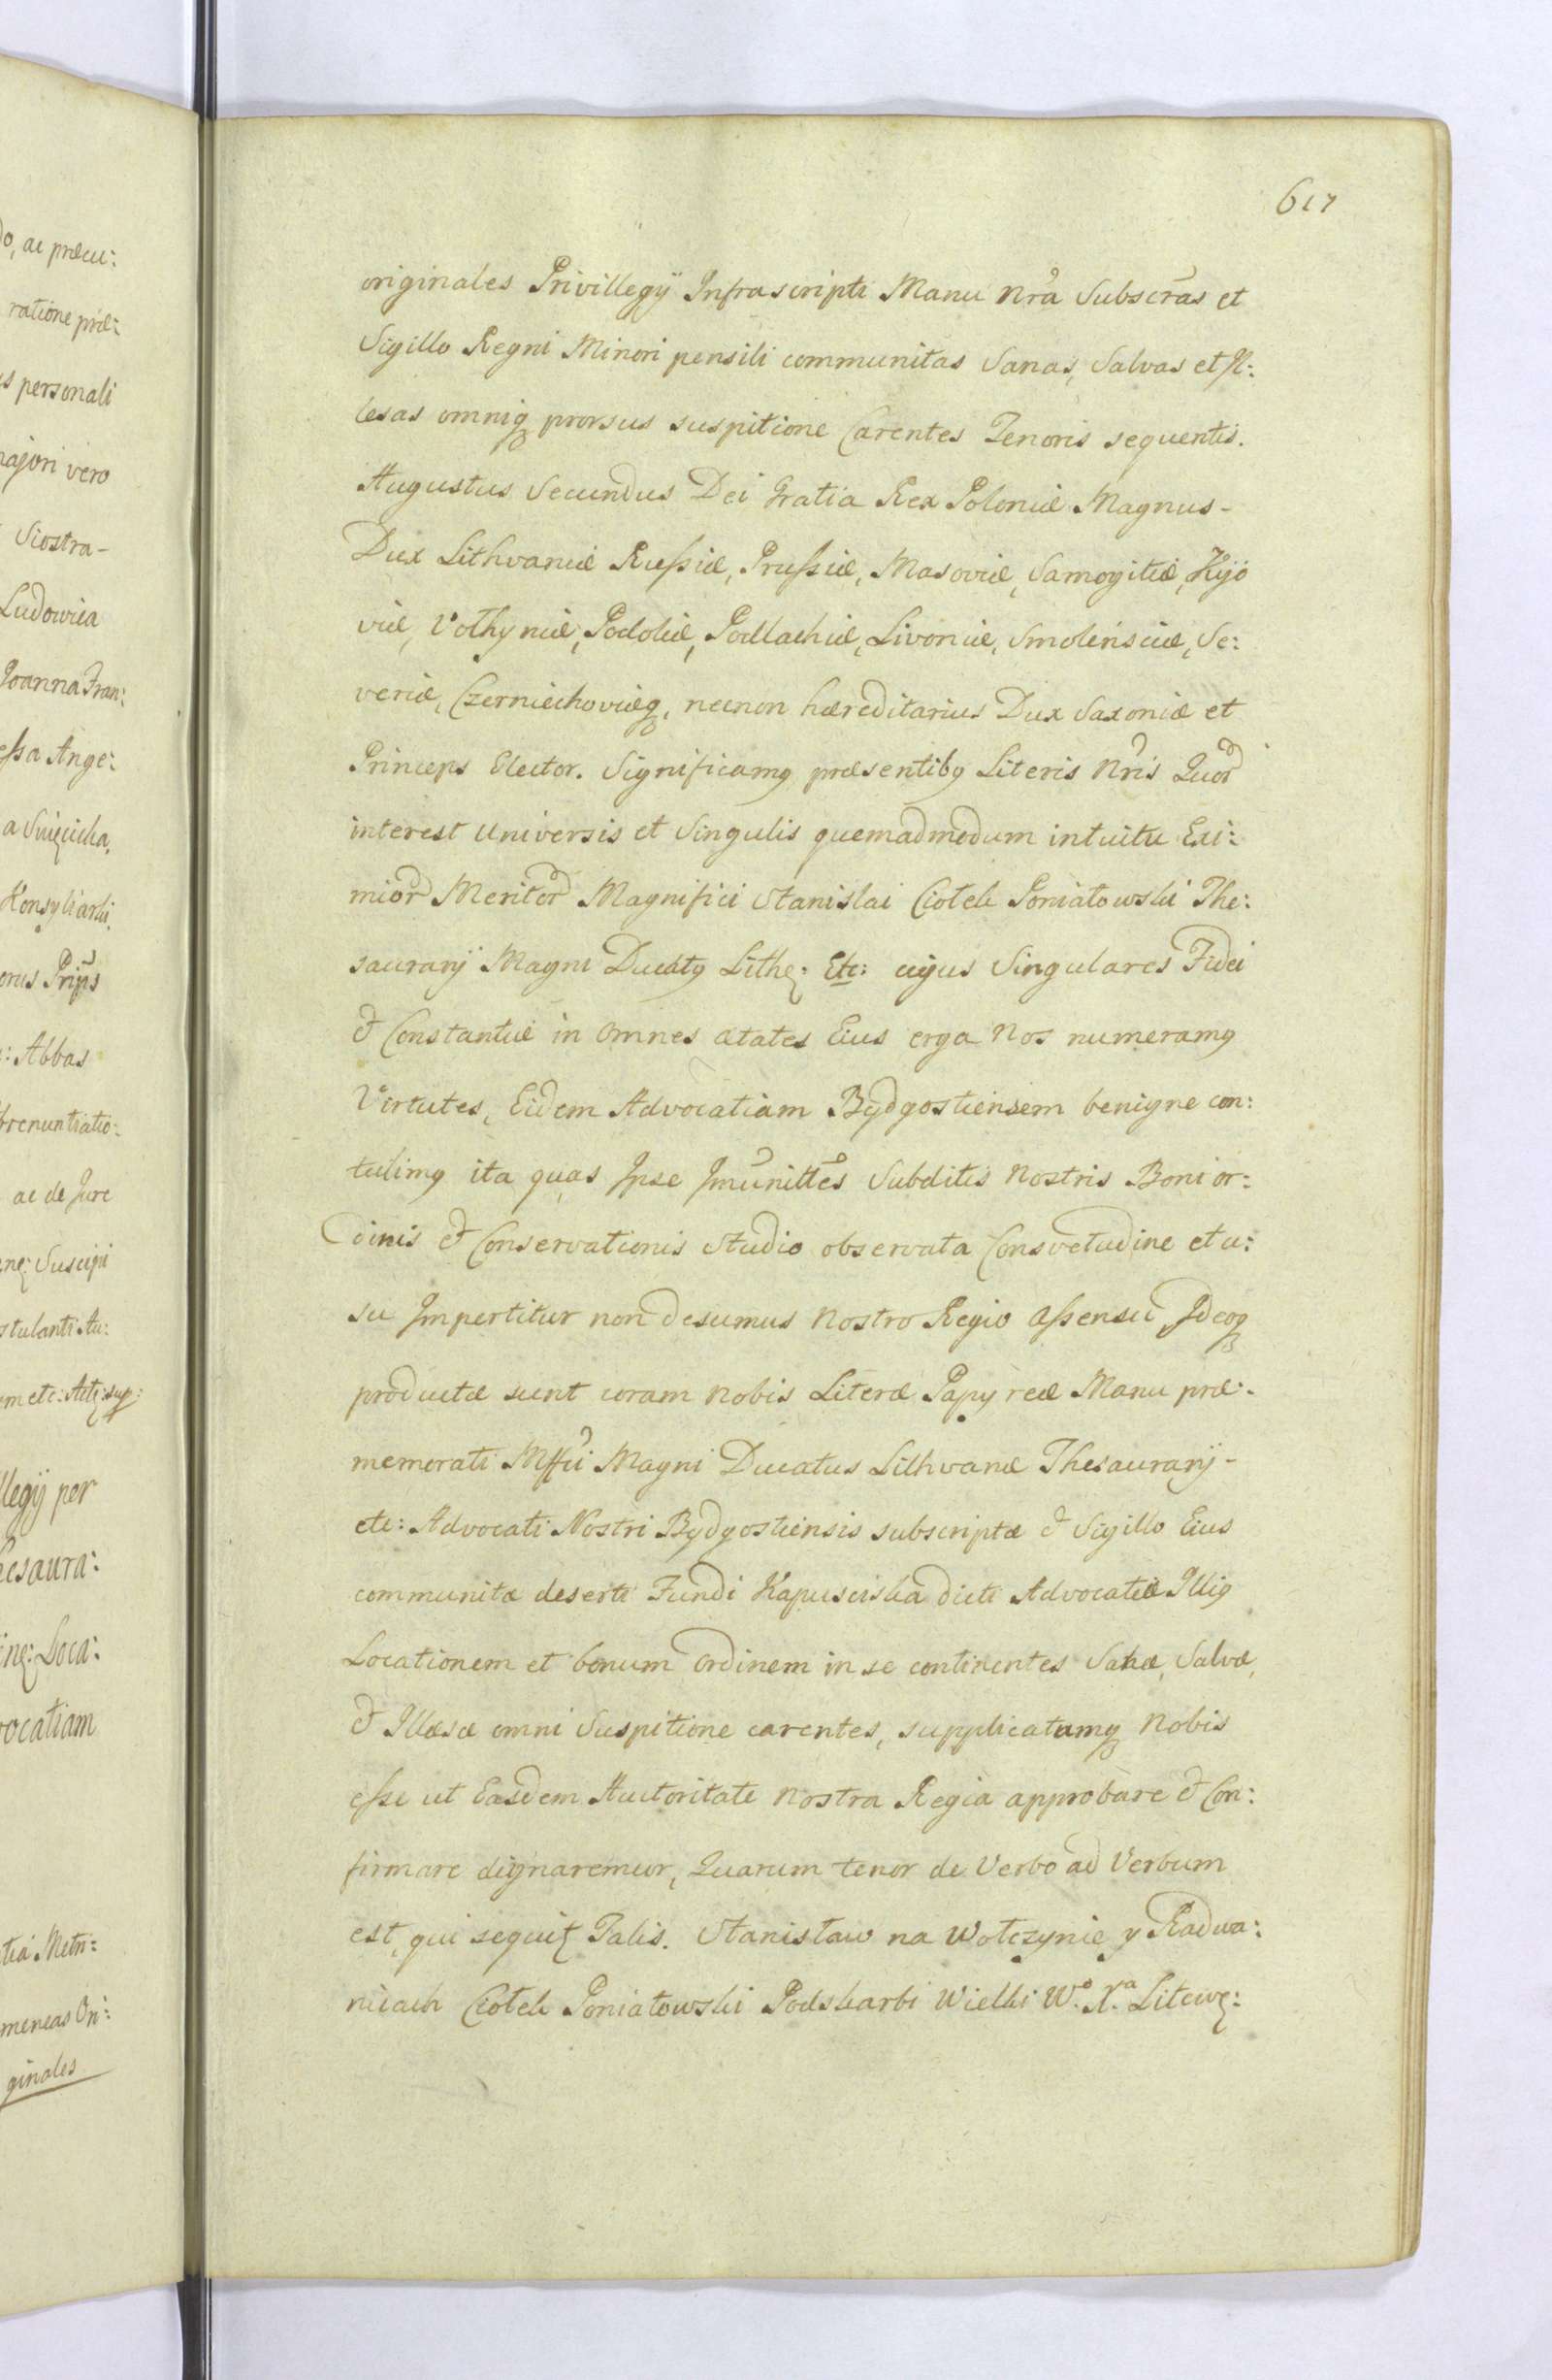 617
originales Privillegÿ Infrascripti Manu Nra Subscras et
Sigillo Regni Minori pensili communitas Sanas, Salvas et Il:
lesas omniq prorsus suspitione Carentes Tenoris sequentis.
Augustus Secundus Dei Gratia Rex Poloniæ Magnus-
Dux Lithvaniæ Russiæ, Prussiæ, Masoviæ, Samogitiæ, Kÿo
viæ, Volhyniæ, Podoliæ, Podlachiæ, Livoniæ, Smolensciæ, Se:
veriæ, Czerniechoviæq, necnon hæreditarius Dux Saxoniæ et
Princeps Elector. Significamq præsentibq Literis Nris Quor
interest Universis et Singulis quemadmodum intuitu Exi:
mior Meritor Magnifici Stanislai Ciołek Poniatowski The:
saurarÿ Magni Ducatq Lithę: Etc: cujus Singulares Fidei
& Constantiæ in Omnes ætates Eius erga Nos numeramq
Virtutes, Eidem Advocatiam Bydgostiensem benigne con:
tulimq ita quas Ipse Imunittes Subditis Nostris Boni or:
dinis & Conservationis Studio observata Consvetudine et u:
su Impertitur non desumus Nostro Regio Assensu, Ideoq
productæ sunt coram Nobis Literæ Papyreæ Manu præ:
memorati Mffci Magni Ducatus Lithvanæ Thesaurarÿ-
etc: Advocati Nostri Bydgostiensis subscriptæ & Sigillo Eius
communitæ deserti Fundi Kapusciska dicti Advocatiæ Illiq
Locationem et bonum Ordinem in se continentes Sanæ, Salvæ,
& Illæsæ omni Suspitione carentes, supplicatumq Nobis
esse ut Easdem Authoritate Nostra Regia approbare & Con:
firmare dignaremur, Quarum tenor de Verbo ad Verbum
est, qui sequit Talis. Stanisław na Wołczynie y Radwa:
nicach Ciołek Poniatowski Podskarbi Wielki Wo. Xa. Litewę:
do, ac præcu:
ratione præ:
s personali
majori vero
Siostra-
Ludowica
Joanna Fran:
essa Ange:
a Swięcicka,
Konsyliarki,
: Abbas
ac de Jure
Suscipi
stulanti Au:
llegÿ per
hesaura:
Loca:
vocatiam
ginales